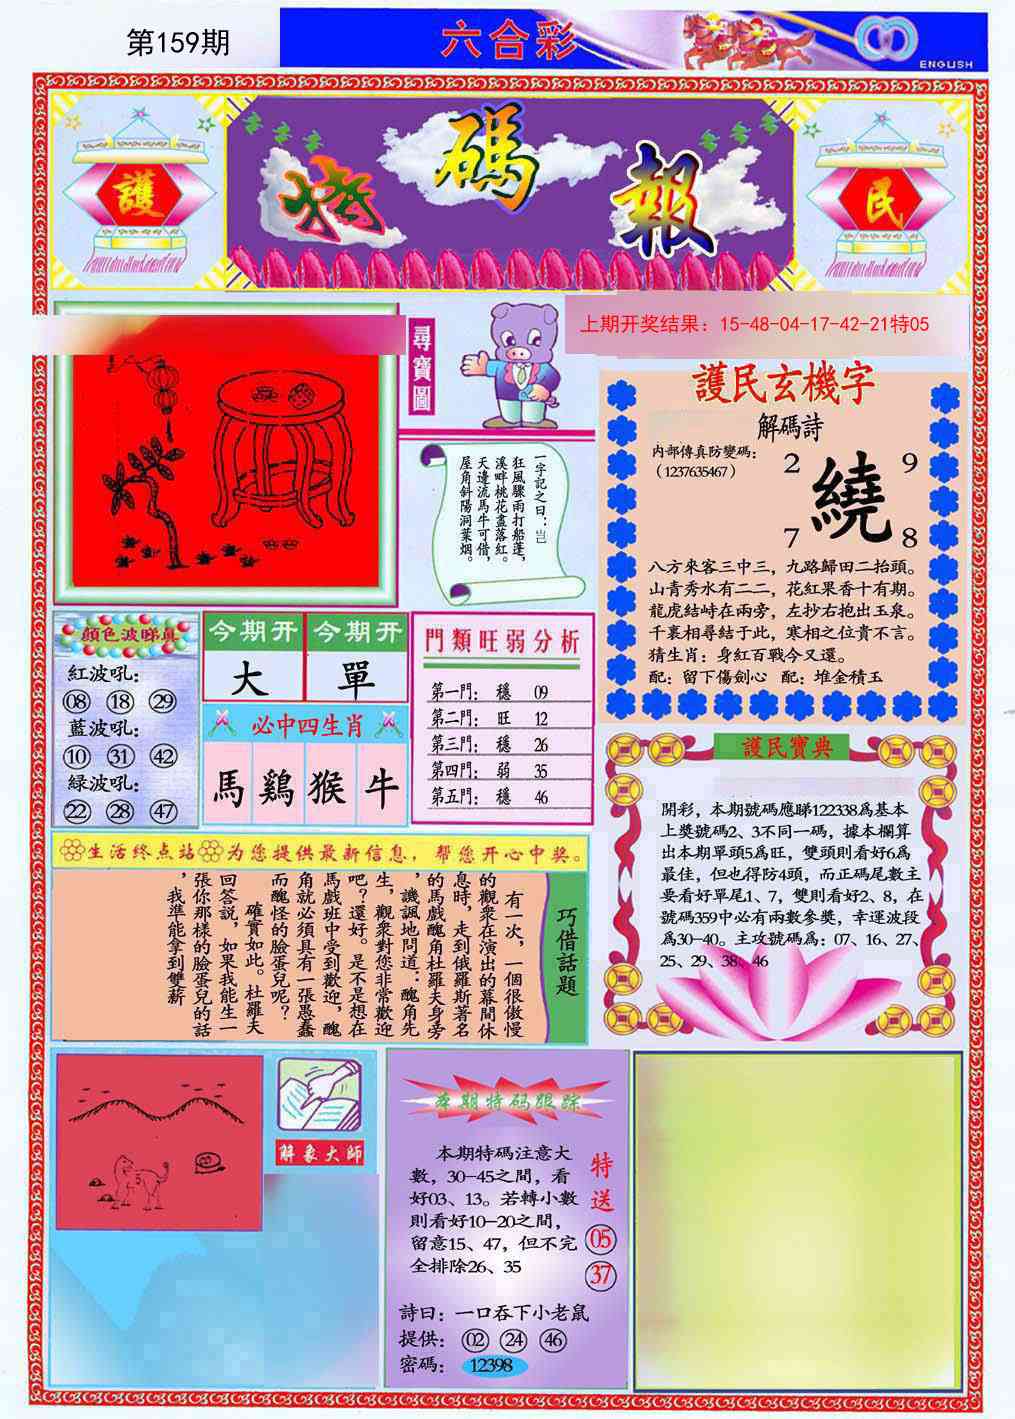 第159期
六合彩
ENGLISH
護
特碼報
民
尋寶圖
上期开奖结果：15-48-04-17-42-21特05
一字記之曰：岂
狂風驟雨打船蓬，
溪畔桃花盡落紅。
天邊流馬牛可借，
屋角斜陽洞葉烟。
護民玄機字
解碼詩
內部傳真防變碼：
（1237635467）
2
9
繞
7
8
八方來客三中三，九路歸田二抬頭。
山青秀水有二二，花紅果香十有期。
龍虎結峙在兩旁，左抄右抱出玉泉。
千裏相尋結于此，寒相之位貴不言。
猜生肖：身紅百戰今又還。
配：留下傷劍心　配：堆金積玉
顔色波睇真
紅波吼：
08 18 29
藍波吼：
10 31 42
緑波吼：
22 28 47
今期开 今期开
大 單
必中四生肖
馬 鷄 猴 牛
門類旺弱分析
第一門： 穩 09
第二門： 旺 12
第三門： 穩 26
第四門： 弱 35
第五門： 穩 46
護民寶典
開彩，本期號碼應睇122338爲基本
上獎號碼2、3不同一碼，據本欄算
出本期單頭5爲旺，雙頭則看好6爲
最佳，但也得防4頭，而正碼尾數主
要看好單尾1、7，雙則看好2、8，在
號碼359中必有兩數參獎，幸運波段
爲30-40。主攻號碼爲：07、16、27、
25、29、38、46
生活终点站 为您提供最新信息，帮您开心中奖。
巧借話題
有一次，一個很傲慢
的觀衆在演出的幕間休
息時，走到俄羅斯著名
的馬戲醜角杜羅夫身旁
，譏諷地問道：醜角先
生，觀衆對您非常歡迎
吧？還好。是不是想在
馬戲班中受到歡迎，醜
角就必須具有一張愚蠢
而醜怪的臉蛋兒呢？
確實如此。杜羅夫
回答説，如果我能生一
張你那樣的臉蛋兒的話
，我準能拿到雙薪
解象大師
本期特码跟踪
本期特碼注意大
數，30-45之間，看
好03、13。若轉小數
則看好10-20之間，
留意15、47，但不完
全排除26、35
特送
05
37
詩曰：一口吞下小老鼠
提供：02 24 46
密碼：12398